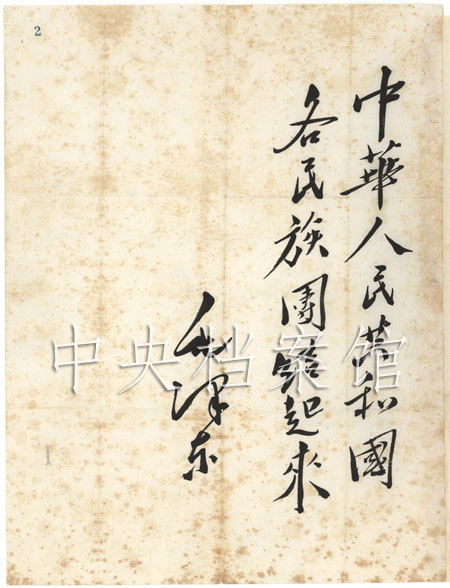 2
中華人民共和國
各民族團結起來
毛澤东
中央档案馆